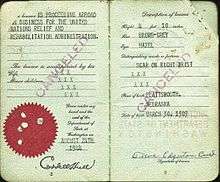 a bearer IS PROCEEDING ABROAD
ON BUSINESS FOR THE UNITED
NATIONS RELIEF AND
REHABILITATION ADMINISTRATION.
The bearer is accompanied by his
Wife, XXX
Minor children, XXX
XXX
XXX
CANCELED
Given under my
hand and the
seal of the
Department of
State at
Washington on
AUGUST 24TH
Cordell Hull
Description of bearer
Height 5 feet 10 inches
Hair BROWN-GREY
Eyes HAZEL
Distinguishing marks or features:
SCAR ON RIGHT WRIST
XXX
XXX
Place of birth PLATTSMOUTH,
NEBRASKA
Date of birth MARCH 30,
CANCELED